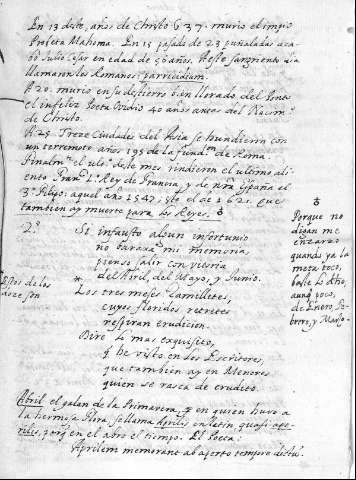 En 13 deste, años de Christo 637. murio el impio
Profeta Mahoma. En 15 pasado de 23 puñaladas aca
bó Julio Cesar en edad de 56 años. A este
llamaron los Romanos: parricidium.
A 20. murio en su destierro
el infeliz Poeta Ovidio 40 años antes del Nacim.to
de Christo.
A 25. Treze Ciudades del Asia se hundieron con
un terremoto años 195 de la fund.on de Roma.
Finalm.te el ult.o deste mes rindieron el ultimo ali
ento Fran.co 1.o Rey de Francia, y de nra España el
3.o Filipo: aquel año 1547, este el de 1621. que
tambien ay muerte para los Reyes.
2.a Si infausto algun infortunio
no baraxa mi memoria,
pienso salir con victoria
del Abril, del Mayo, y Junio.
* Los tres meses
cuyos floridos
respiran erudicion.
Diré lo mas exquisito,
q̃ he visto en los Escritores,
que tambien ay en Menores
quien se rasca de erudito.
Estos de los
doze son
Porque no
digan me
quando ya la
meta toco,
aunq̃ poco,
de Enero, Fe-
brero, y Marzo.
Abril el galan de la Primavera, y en quien huvo a
la hermosa Flora, se llama Aprilis en latin, quasi ape-
rilis, porq̃ en el abre el tiempo. El Poeta:
Aprilem memorant ab aperto tempore dictū.